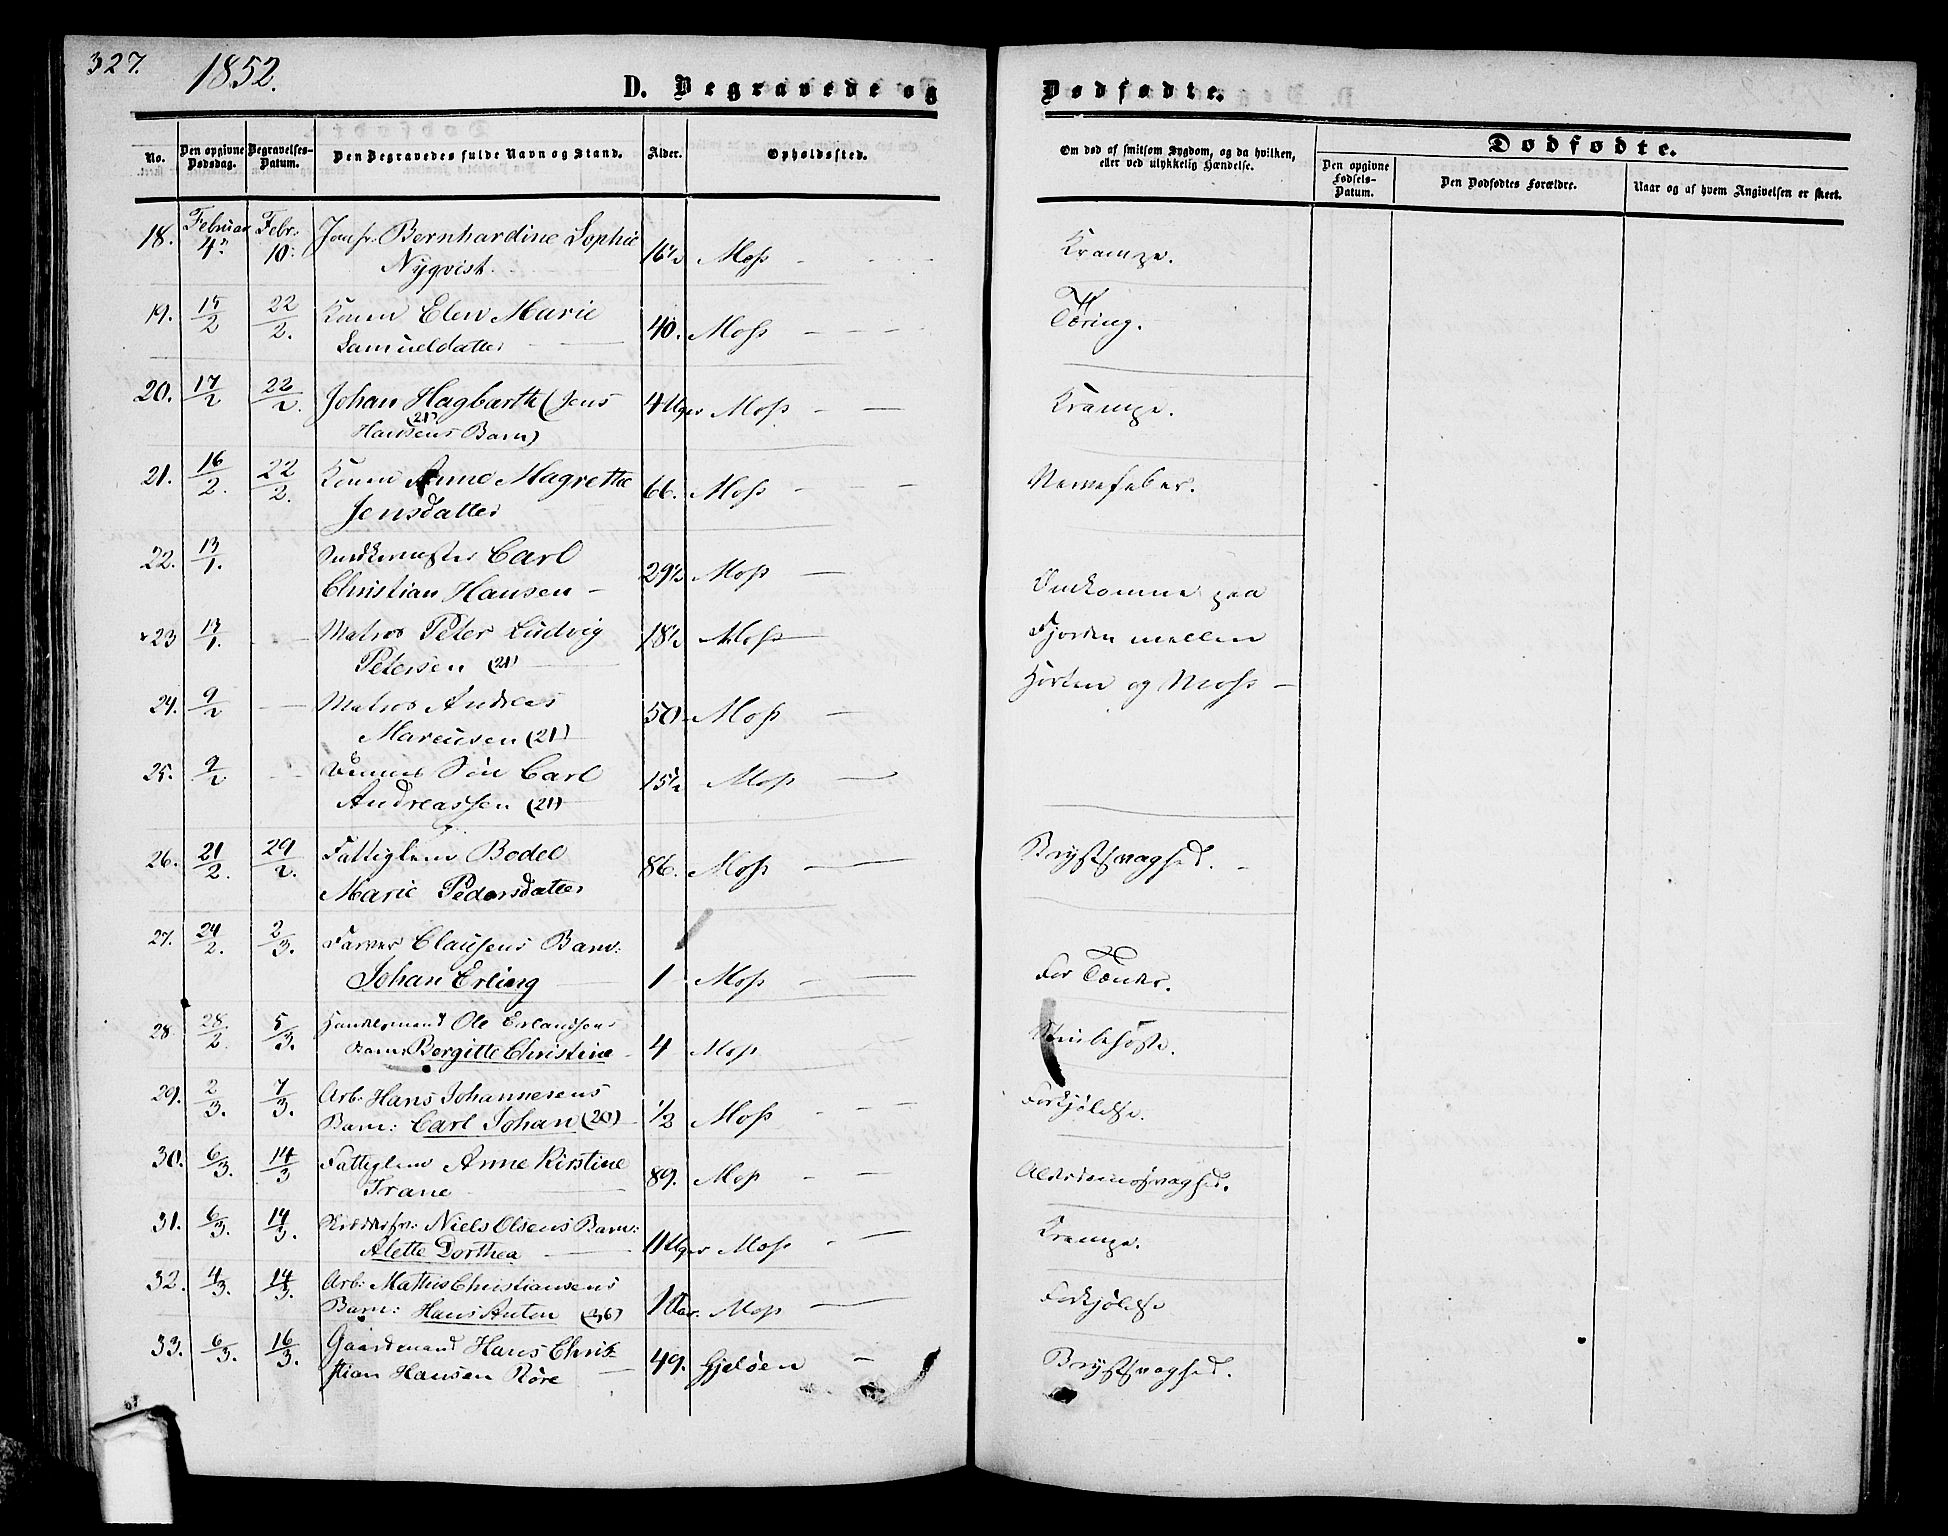 327.
1852.
D. Begravede og
Dødfødte.
No.
Den opgivne Dødsdag.
Begravelses-Datum.
Den Begravedes fulde Navn og Stand.
Alder.
Opholdssted.
Om død af smitsom Sygdom, og da hvilken, eller ved ulykkelig Hændelse.
Dødfødte.
Den opgivne Fødsels-Datum.
Den Dødfødtes Forældre.
Naar og af hvem Angivelsen er skeet.
18. Februar 4de Febr. 10. Jomfr. Bernhardine Sophie 16½ Moss Krampe.
Nyqvist.
19. 15/2 22/2. Konen Elen Marie 40. Moss Tæring.
Samueldatter
20. 17/2 22/2. Johan Hagbarth (Jens 4 Uger Moss Krampe.
(21) Hansens Barn)
21. 16/2. 22/2. Konen Anne Magrethe 66. Moss Nervefeber.
Jensdatter
22. 13/1. Carl 29½ Moss Omkomne paa
Christian Hansen
23 13/1. Matros Peter Ludvig 18½ Moss Fjorden mellem
Petersen (21) Horten og Moss
24. 9/2 Matros Andreas 50 Moss
Marcusen (21)
25. 9/2 Søn Carl 15½ Moss
Andreassen (21)
26. 21/2. 29/2. Fattiglem Bodel 86. Moss Brystsvaghed.
Marie Pedersdatter
27. 24/2. 2/3. Farver Clausens Barn:
Johan Erling 1 Moss For Tænder.
28 28/2. 5/3. Handelsmand Ole Erlandsens
Barn: Bergitte Christine 4 Moss Strubehoste.
29. 2/3. 7/3. Arb: Hans Johannesens
Barn: Carl Johan (20) 1/2 Moss Forkjølelse.
30. 6/3. 14/3 Fattiglem Anne Kirstine 89. Moss Alderdomssvaghed.
Trane
31. 6/3. 14/3. Niels Olsens Barn:
Alette Dorthea 11 Uger Moss Krampe.
32. 4/3. 14/3. Arb: Mathis Christiansens
Barn: Hans Anton (36) 1 Aar. Moss Forkjølelse
33. 6/3. 16/3. Gaardmand Hans Chris-
stian Hansen Røre 49. Gjeløen Brystsvaghed.